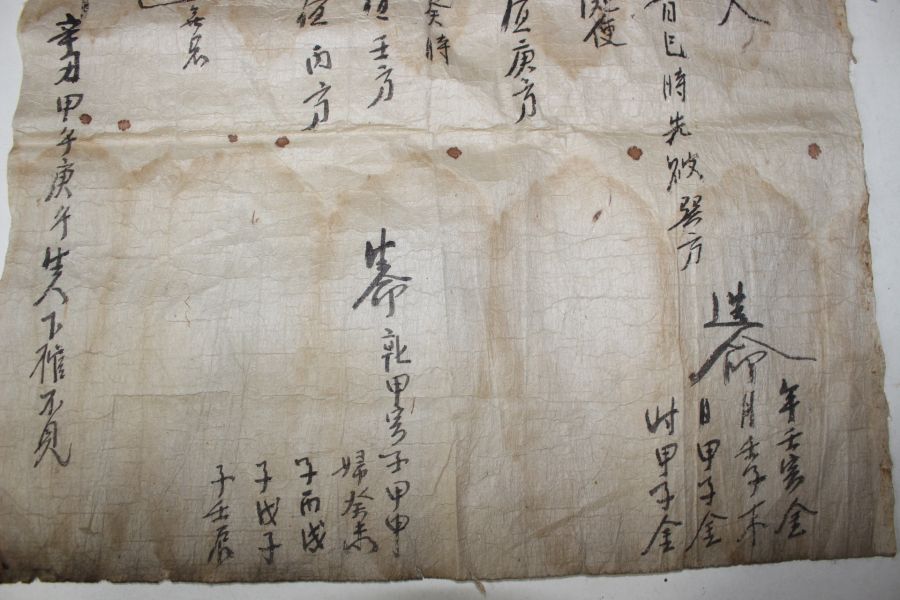 人
造命
年壬寅金
月壬子木
日甲子金
時甲子金
日巳時先破巽方
便
庚方
時
壬方
丙方
生命
乾甲寅子甲申
婦癸未
子丙戌
子戊子
子壬辰
辛丑甲午庚午生人下棺不見